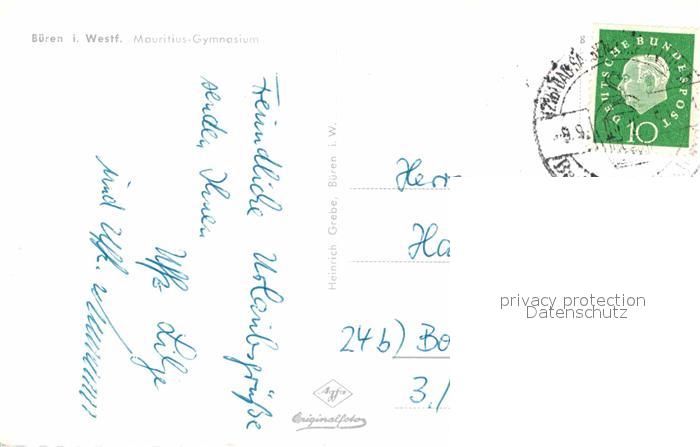 Büren i. Westf. Mauritius-Gymnasium
Freundliche Urlaubsgrüße
senden Ihnen
Uffz Lilje
und Uffz.
Heinrich Grebe, Büren i. W.
Agfa
Originalfoto
DEUTSCHE BUNDESPOST
10
Herr
Ha
24b) Bo
3./
privacy protection
Datenschutz